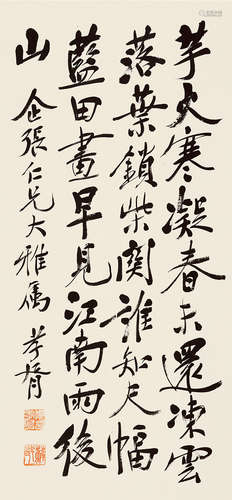 芋火寒凝春未還凍雲
落葉鎖柴関誰知尺幅
藍田畫早見江南雨後
山
企張仁兄大雅属
孝胥